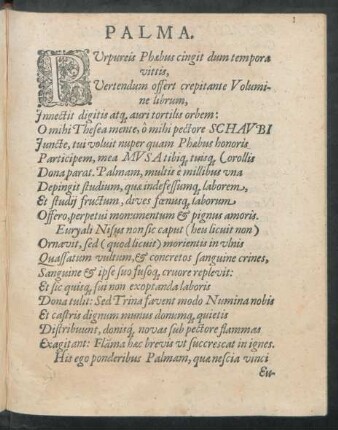 PALMA.
PUrpureis Phæbus cingit dum tempora
vittis,
Vertendum offert crepitante Volumi-
ne librum,
Innectit digitis atq; auri tortilis orbem:
O mihi Thesea mente, ô mihi pectore SCHAVBI
Juncte, tui voluit nuper quam Phœbus honoris
Participem, mea MVSA tibiq; tuisq; Corollis
Dona parat. Palmam, multis è millibus vna
Depingit studium, quæ indefessumq; laborem,
Et studij fructum, dives fœnusq; laborum
Offero, perpetui monumentum & pignus amoris.
Euryali Nisus non sic caput (heu licuit non)
Ornavit, sed (quod licuit) morientis in vlnis
Quassatum vultum, & concretos sanguine crines,
Sanguine & ipse suo fusoq; cruore replevit:
Et sic quisq; sui non exoptanda laboris
Dona tulit: Sed Trina favent modo Numina nobis
Et castris dignum munus donumq; quietis
Distribuens, donisq; novas sub pectore flammas
Exagitant: Flãma hæc brevis vt succrescat in ignes.
His ego ponderibus Palmam, quæ nescia vinci
Eu-